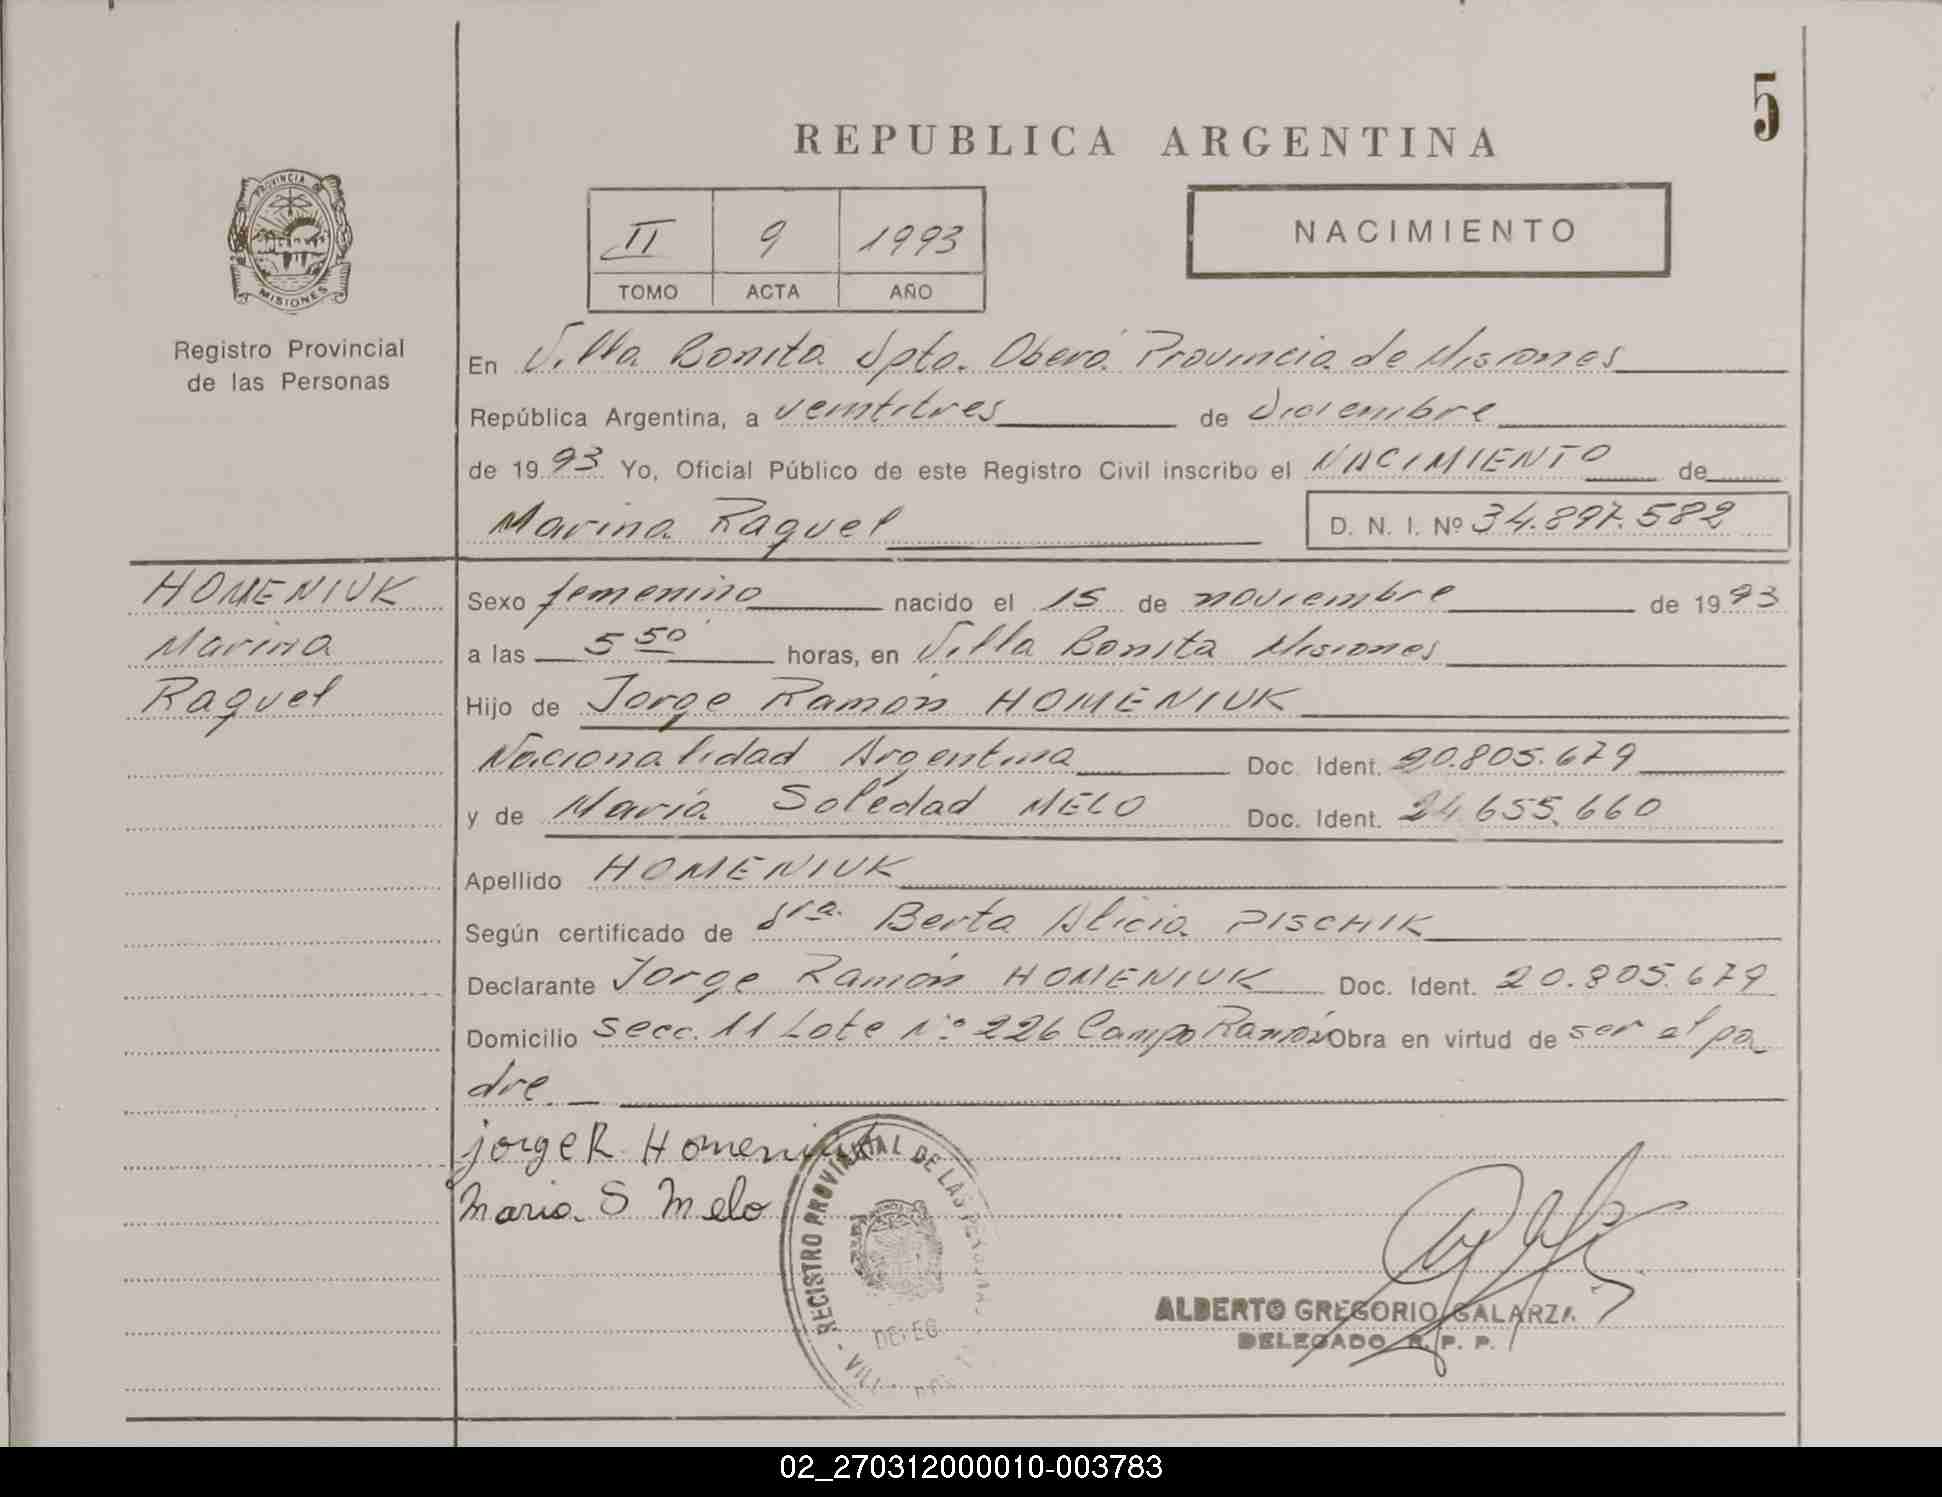 5
REPUBLICA ARGENTINA
PROVINCIA DE
MISIONES
Registro Provincial
de las Personas
II 9 1993
TOMO ACTA AÑO
NACIMIENTO
En Villa Bonita Dpto. Oberá Provincia de Misiones
República Argentina, a veintitres de Diciembre
de 1993 Yo, Oficial Público de este Registro Civil inscribo el NACIMIENTO de
Marina Raquel D. N. I. Nº 34.897.582
HOMENIUK
Marina
Raquel
Sexo femenino nacido el 15 de noviembre de 1993
a las 5 50 horas, en Villa Bonita Misiones
Hijo de Jorge Ramón HOMENIUK
Nacionalidad Argentina Doc. Ident. 20.805.679
y de María Soledad MELO Doc. Ident. 24.655.660
Apellido HOMENIUK
Según certificado de Sra. Berta Alicia PISCHIK
Declarante Jorge Ramón HOMENIUK Doc. Ident. 20.805.679
Domicilio secc. 11 Lote Nº 226 Campo Ramón Obra en virtud de ser el pa
dre
jorge R Homeniuk
Maria S Melo
REGISTRO PROVINCIAL DE LAS PERSONAS
ALBERTO GREGORIO GALARZA
DELEGADO R. P. P.
02_270312000010-003783